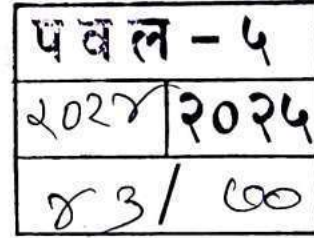 पवल - ५
२०२४ २०२५
४३/७०